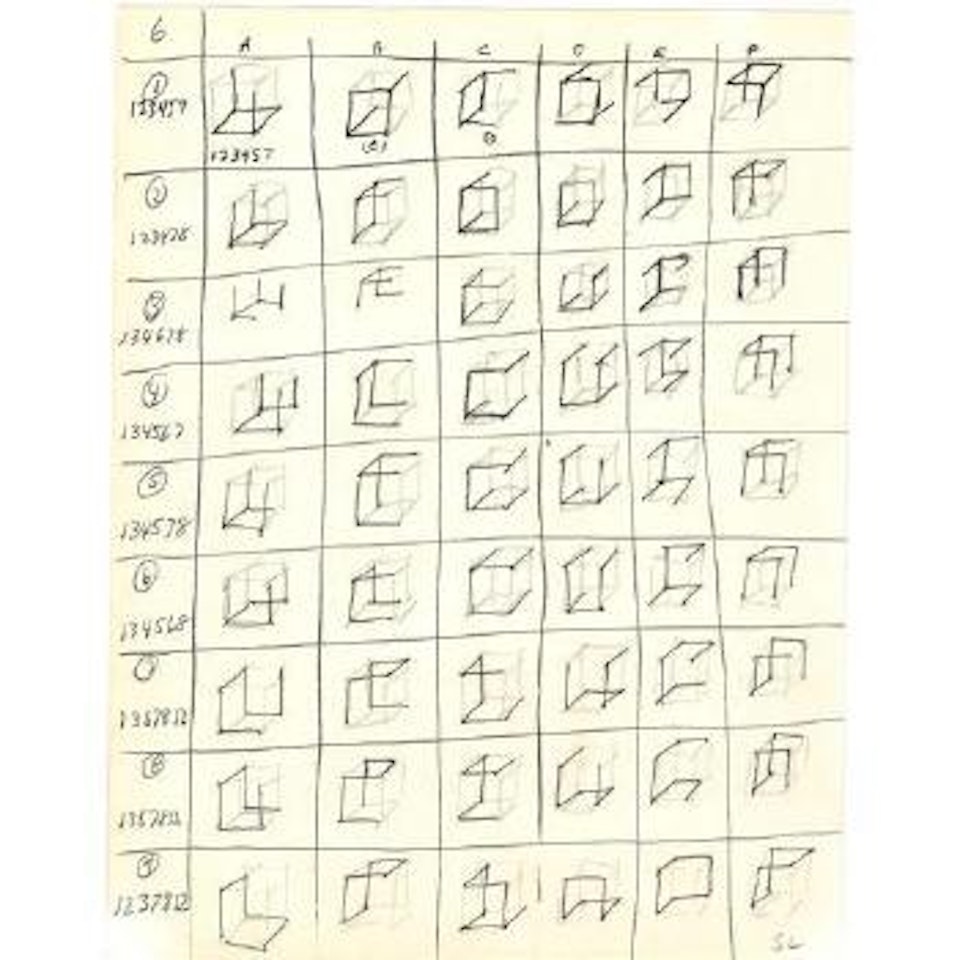 6
A B C D E F
1
123457
123457
(C)
B
2
123478
3
134678
4
134567
5
134578
6
134568
7
8
9
SL